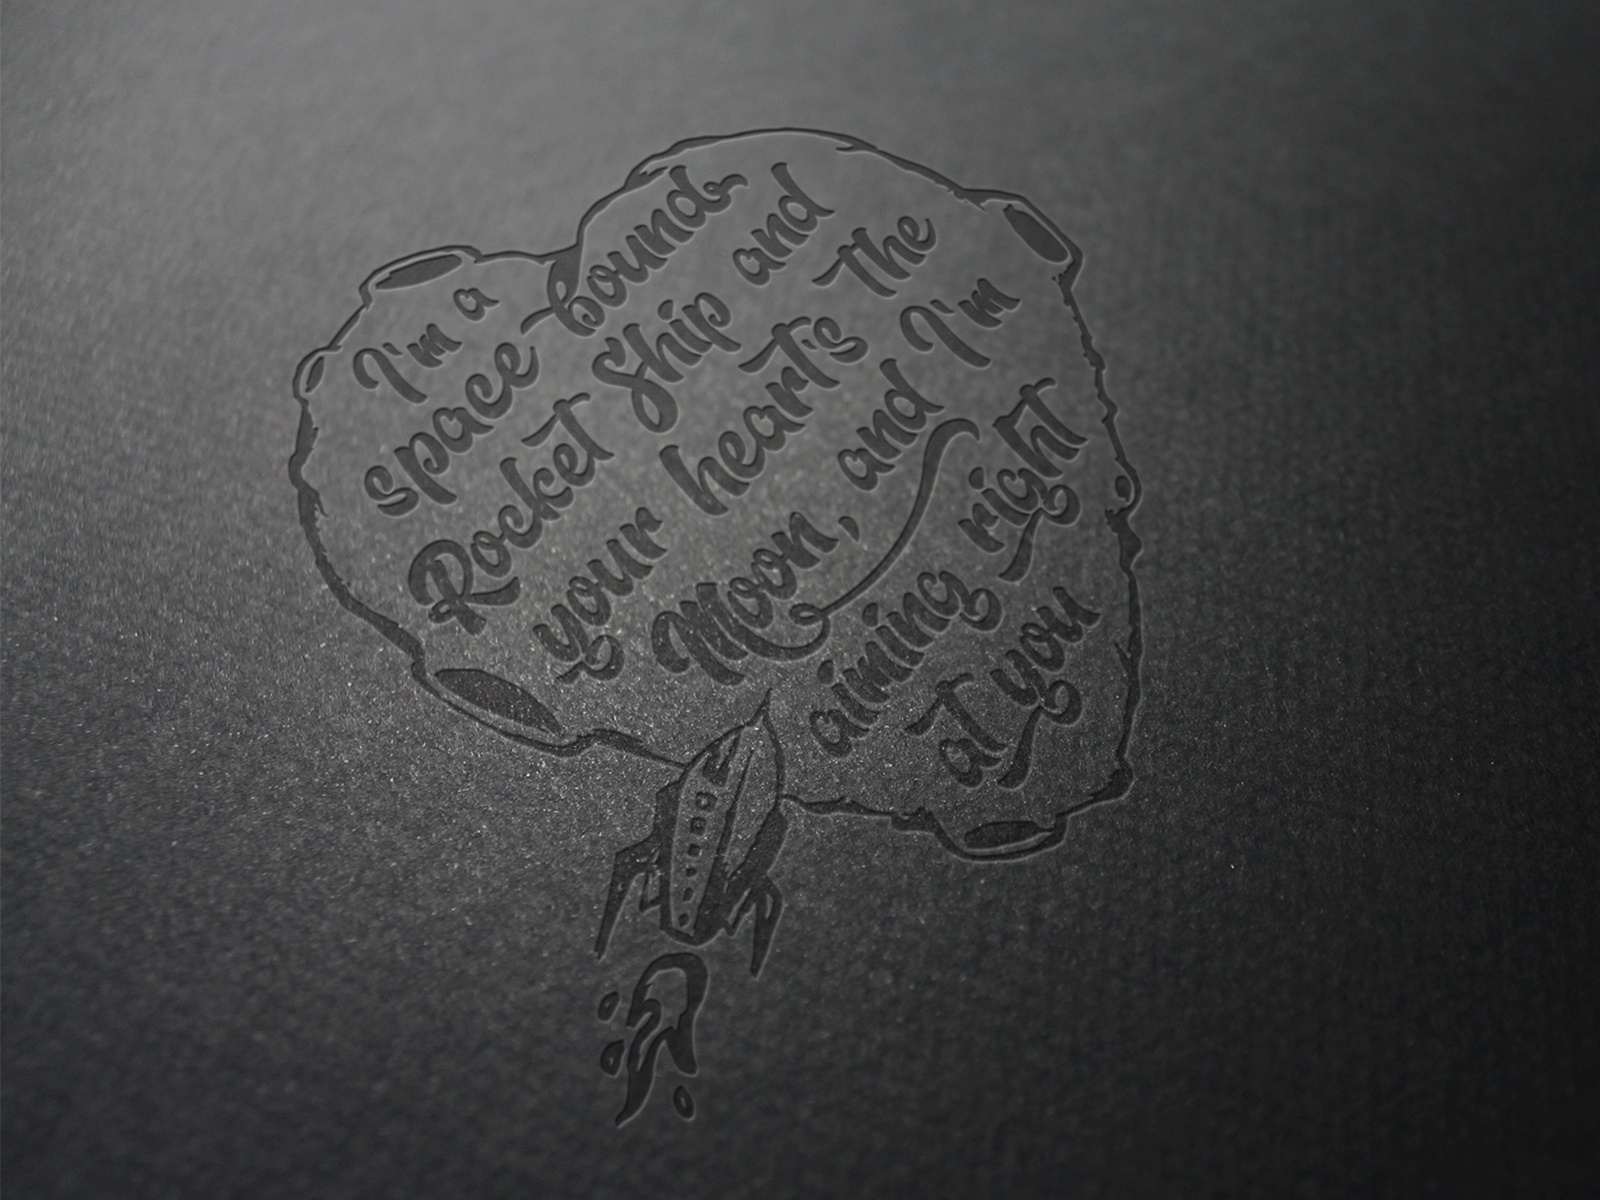 I'm a
space bound
Rocket Ship and
your heart's the
Moon, and I'm
aiming right
at you